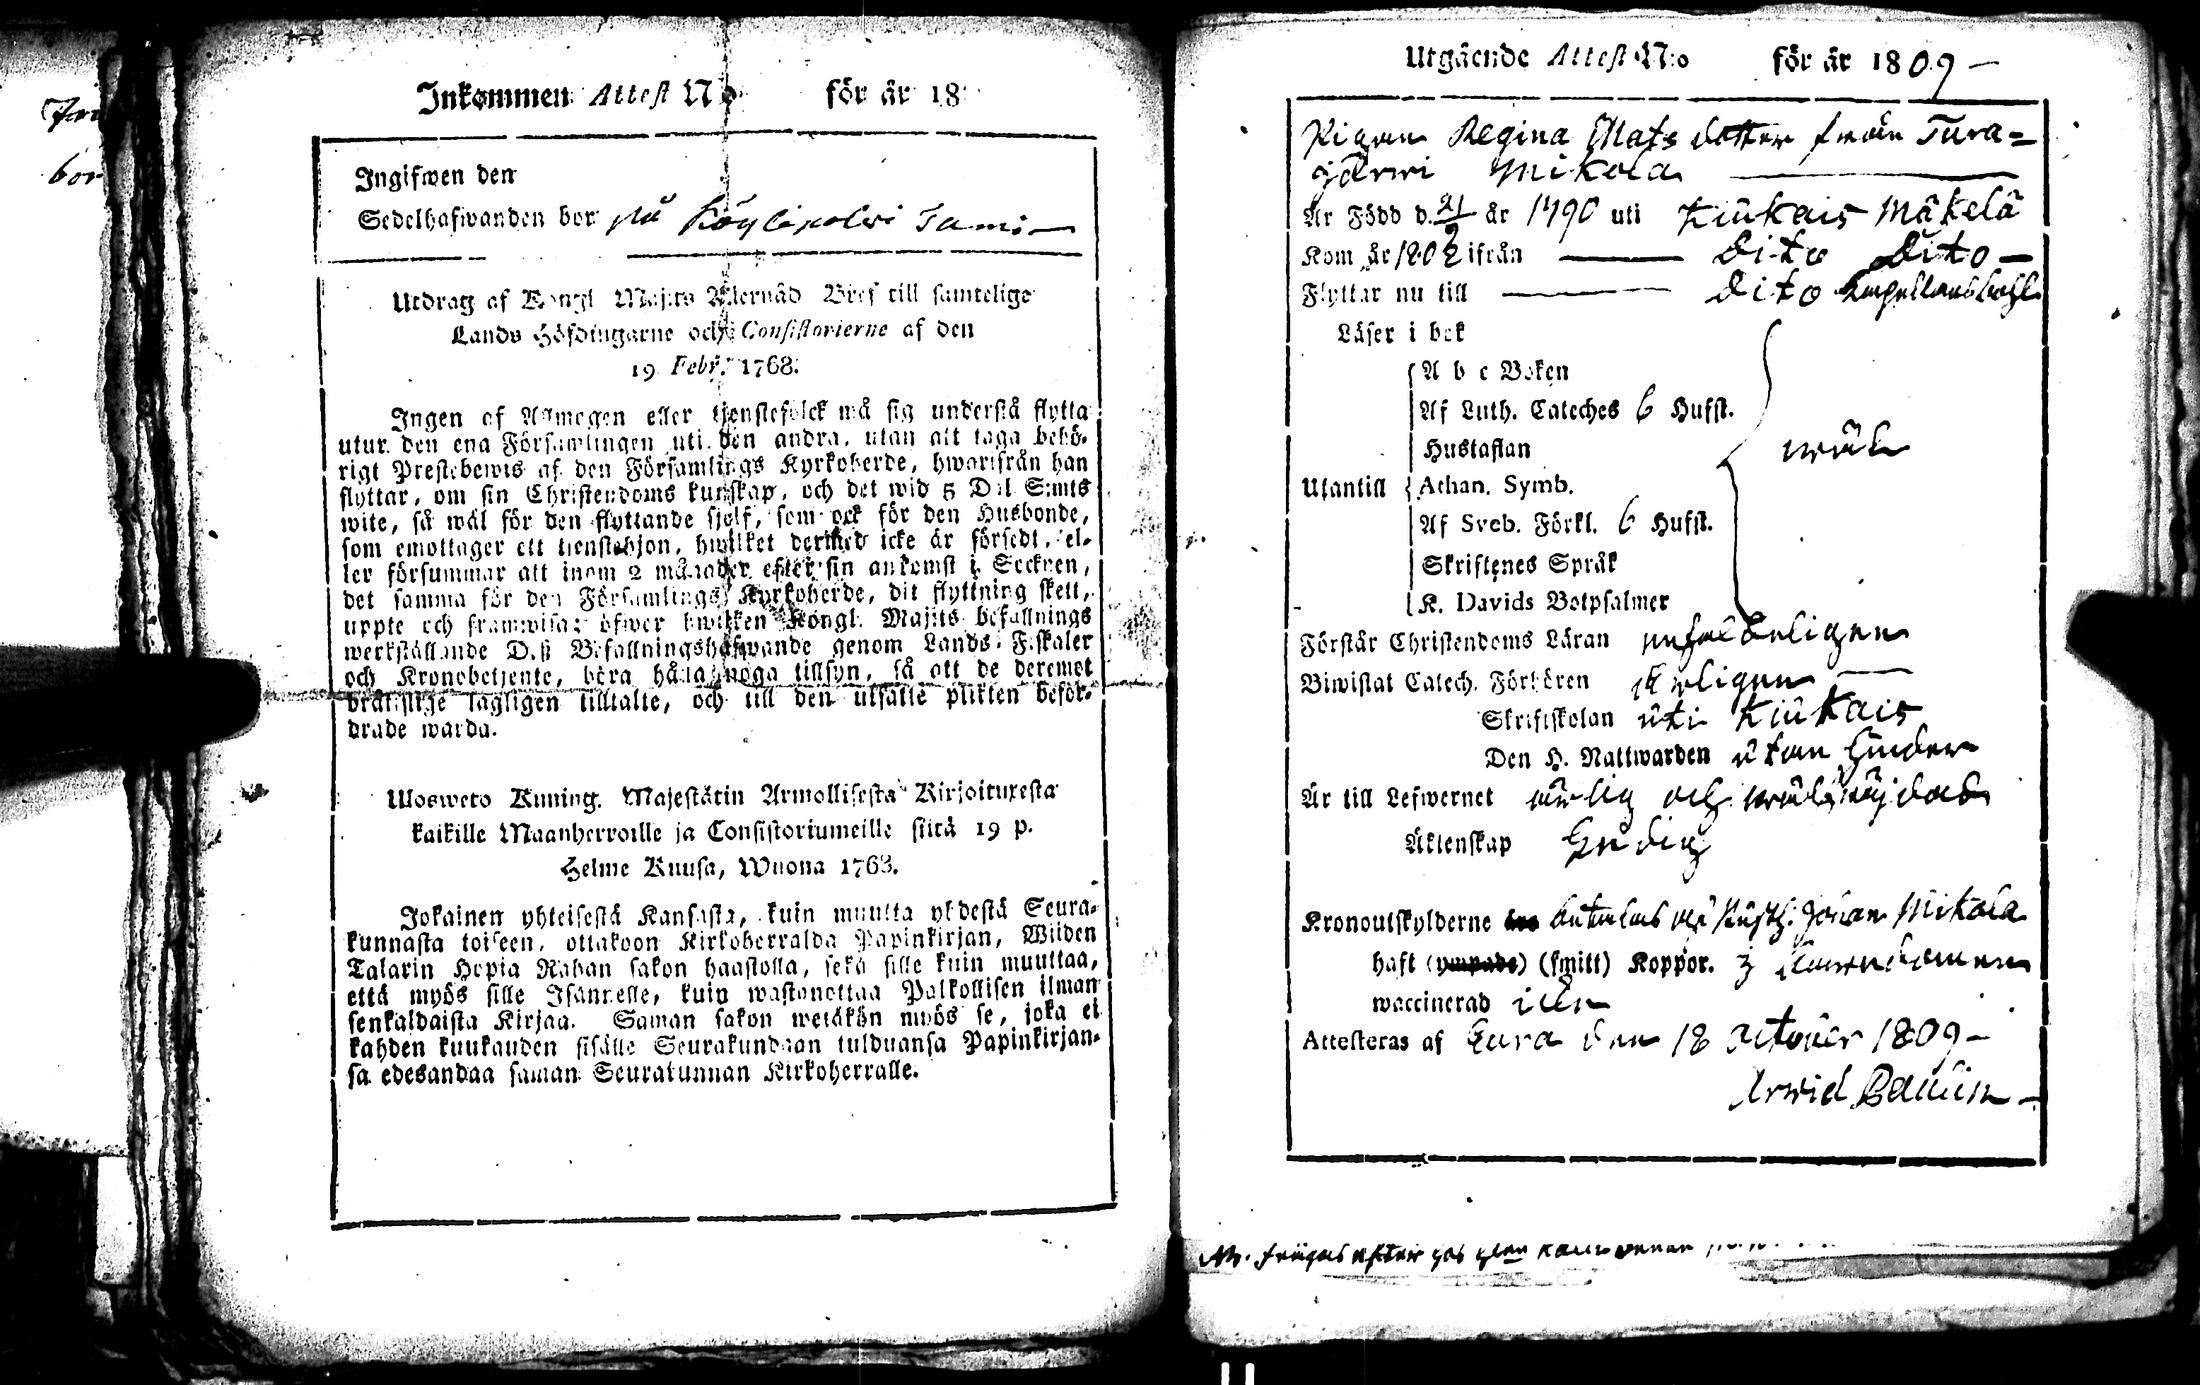 Jnkommen Attest N:o för år 18
Jngifwen den
Sedelhafwanden bor på Köylipolwi Tami
Utdrag af Kongl Majits Allernåd Bref till samtelige
Lands Höfdingarne och Consistorierne af den
19 Febr. 1768.
Jngen af Allmogen eller tjenstefolck må sig understå flytta
utur den ena Församlingen uti den andra, utan att taga behö-
rigt Prestebewis af den Församlings Kyrkoherde, hwarifrån han
flyttar, om sin Christendoms kunskap, och det wid 5 Dal. S:mts
wite, så wäl för den flyttande sjelf, som ock för den Husbonde,
som emottager ett tienstehjon, hwilket dermed icke är försedt, el-
ler försummar att inom 2 månader efter sin ankomst i Socknen,
det samma för den Församlings Kyrkoherde, dit flyttning skett,
uppte och framwisa: öfwer hwilken Kongl. Majits befallnings
werkställande D.ß Befallningshafwande genom Lands-Fiskaler
och Kronobetjente, böra hålla noga tillsyn, så att de deremot
brottslige lagligen tilltalte, och till den utsatte plikten beför-
drade warda.
Ulosweto Kuning. Majestätin Armollisesta Kirjoituxesta
kaikille Maanherroille ja Consistoriumeille siitä 19 p.
Helme Kuusa, Wuona 1768.
Jokainen yhteisestä Kansasta, kuin muutta yhdestä Seura-
kunnasta toiseen, ottakoon Kirkoherralda Papinkirjan, Wiiden
Talarin Hopia Rahan sakon haastolla, sekä sille kuin muuttaa,
että myös sille Jsännelle, kuin wastanottaa Palkollisen ilman
senkaldaista Kirjaa. Saman sakon wetäkön myös se, joka ei
kahden kuukauden sisälle Seurakundaan tulduansa Papinkirjan-
sa edesandaa saman Seurakunnan Kirkoherralle.
Utgående Attest N:o för år 1809 –
Pigan Regina Mats dotter från Tura=
järwi Mikola
Är Född d. 21/9 år 1790 uti Kiukais Mäkelä
Kom år 1802 ifrån Dito Dito –
Flyttar nu till Dito Capellans bohl
Läser i bok
A b c Boken
Af Luth. Cateches 6 Hufst.
Hustaflan wäl
Utantill Athan. Symb.
Af Sveb. Förkl. 6 Hufst.
Skriftenes Språk
K. Davids Botpsalmer
Förstår Christendoms Läran
Biwistat Catech. Förhören Årligen
Skriftskolan uti Kiukais
Den H. Nattwarden utan hinder
Är till Lefwernet ärlig och
Äktenskap Ledig
Kronoutskylderne betalas på Rusth. Johan Mikola
haft (ympade) (smitt) Koppor.
waccinerad icke
Attesteras af Eura den 18 October 1809 –
Arwid Paulin –